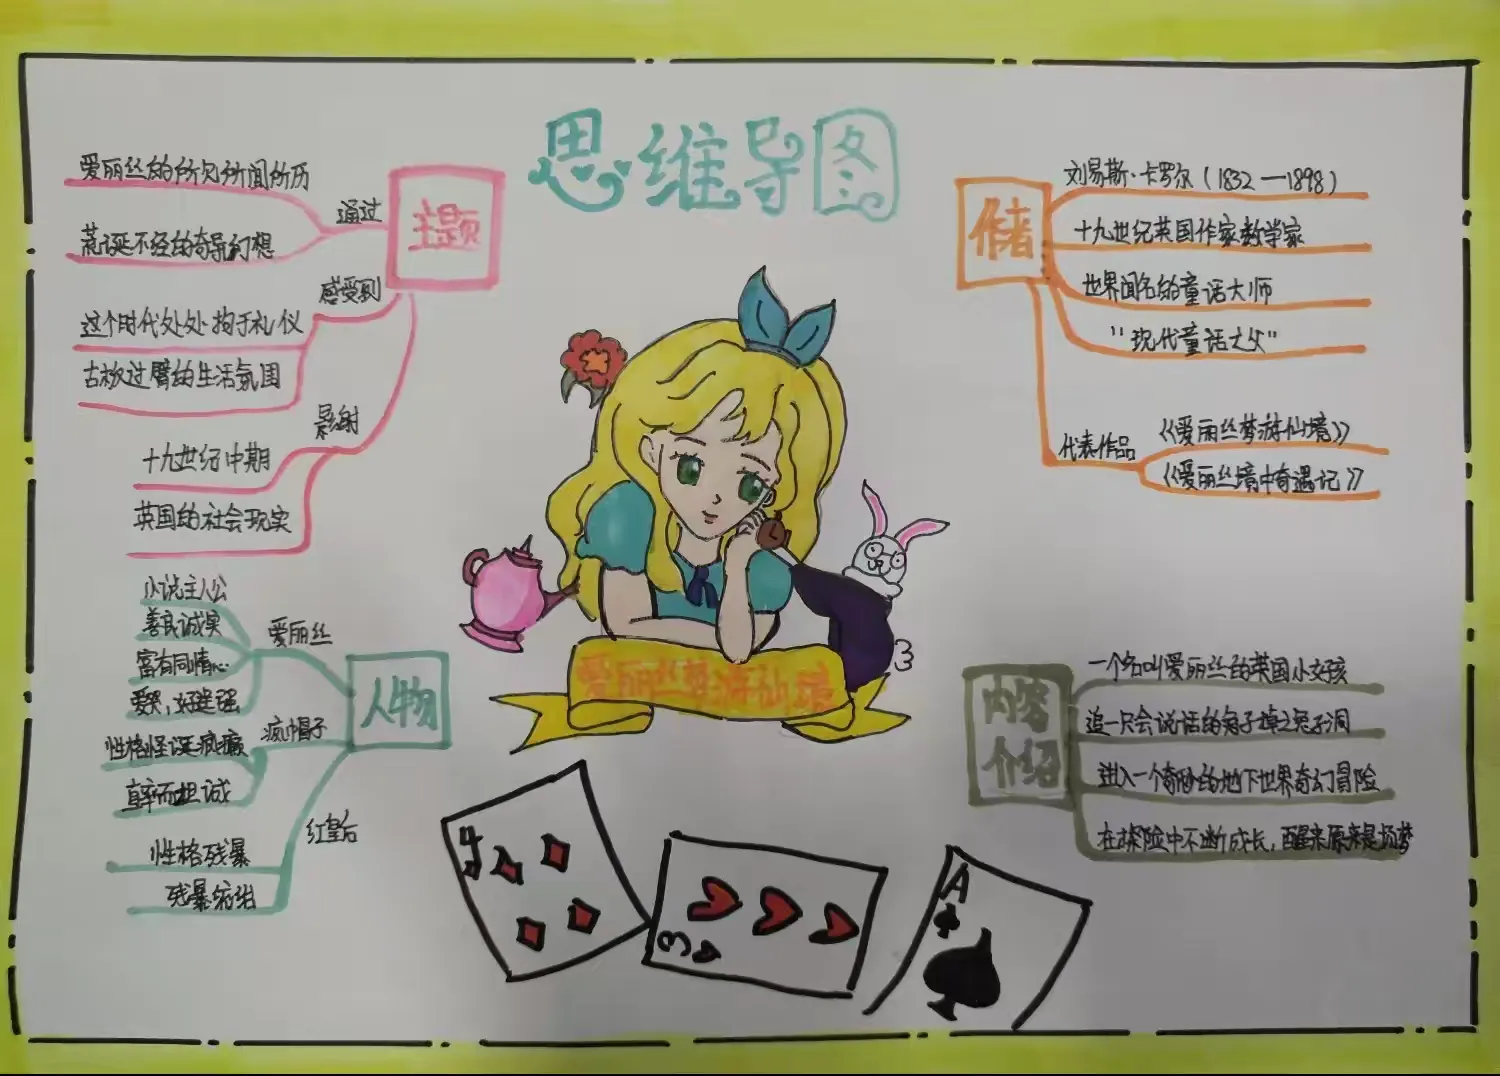 思维导图
主题
通过
爱丽丝的所见所闻所历
荒诞不经的奇异幻想
感受到
这个时代处处拘于礼仪
古板过臂的生活氛围
影射
十九世纪中期
英国的社会现实
作者
刘易斯·卡罗尔（1832—1898）
十九世纪英国作家数学家
世界闻名的童话大师
"现代童话之父"
代表作品
《爱丽丝梦游仙境》
《爱丽丝境中奇遇记》
人物
爱丽丝
小说主人公
善良诚实
富有同情心
爱哭，好逞强
疯帽子
性格怪诞疯癫
直率而坦诚
红皇后
性格残暴
残暴
爱丽丝梦游仙境
内容
介绍
一个名叫爱丽丝的英国小女孩
追一只会说话的兔子掉之兔子洞
进入一个奇妙的地下世界奇幻冒险
在探险中不断成长，醒来原来是场梦
4
3
A